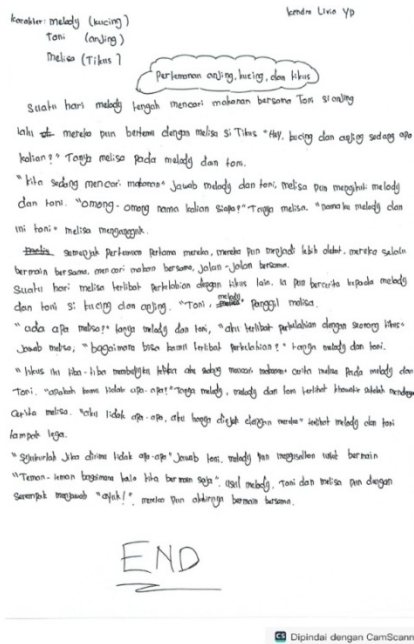 kendra Livia YD
karakter: melody (kucing)
Toni (anjing)
melisa (Tikus)
Pertemanan anjing, kucing, dan tikus
Suatu hari melody tengah mencari makanan bersama Toni si anjing
lalu mereka pun bertemu dengan melisa si Tikus "Hay, kucing dan anjing sedang apa
kalian?" Tanya melisa pada melody dan toni.
"kita sedang mencari makanan" Jawab melody dan toni, melisa pun melody
dan toni. "omong-omong nama kalian siapa?" Tanya melisa. "namaku melody dan
ini toni" melisa mengangguk.
semenjak Pertemuan Pertama mereka, mereka pun menjadi lebih dekat, mereka selalu
bermain bersama, mencari makan bersama, jalan-jalan bersama.
Suatu hari melisa terlibat perkelahian dengan tikus lain. Ia pun bercerita kepada melody
dan toni si kucing dan anjing. "Toni, melody" Panggil melisa.
"ada apa melisa?" tanya melody dan toni, "aku terlibat perkelahian dengan seorang tikus"
Jawab melisa, "bagaimana bisa kamu terlibat perkelahian?" tanya melody dan toni.
"tikus itu tiba-tiba aku sedang mencari makanan" cerita melisa Pada melody dan
Toni. "apakah kamu tidak apa-apa?" Tanya melody, melody dan toni terlihat khawatir setelah mendengar
cerita melisa. "aku tidak apa-apa, aku hanya diejek dengan mereka" melody dan toni
tampak lega.
"Syukurlah Jika dirimu tidak apa-apa" Jawab toni, melody pun untuk bermain
"Teman-teman bagaimana kalo kita bermain saja". usul melody, Toni dan melisa pun dengan
Serempak menjawab "ayok!", mereka pun akhirnya bermain bersama.
END
CS Dipindai dengan CamScann